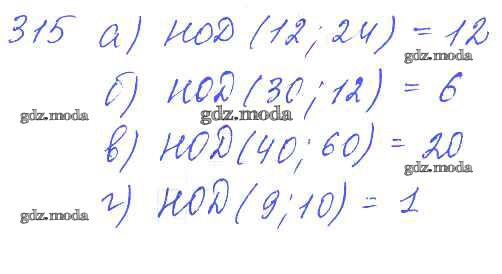 315 а) НОД (12; 24) = 12
gdz.moda
б) НОД (30; 12) = 6
gdz.moda gdz.moda
в) НОД (40; 60) = 20
gdz.moda gdz.moda
г) НОД (9; 10) = 1
gdz.moda gdz.moda